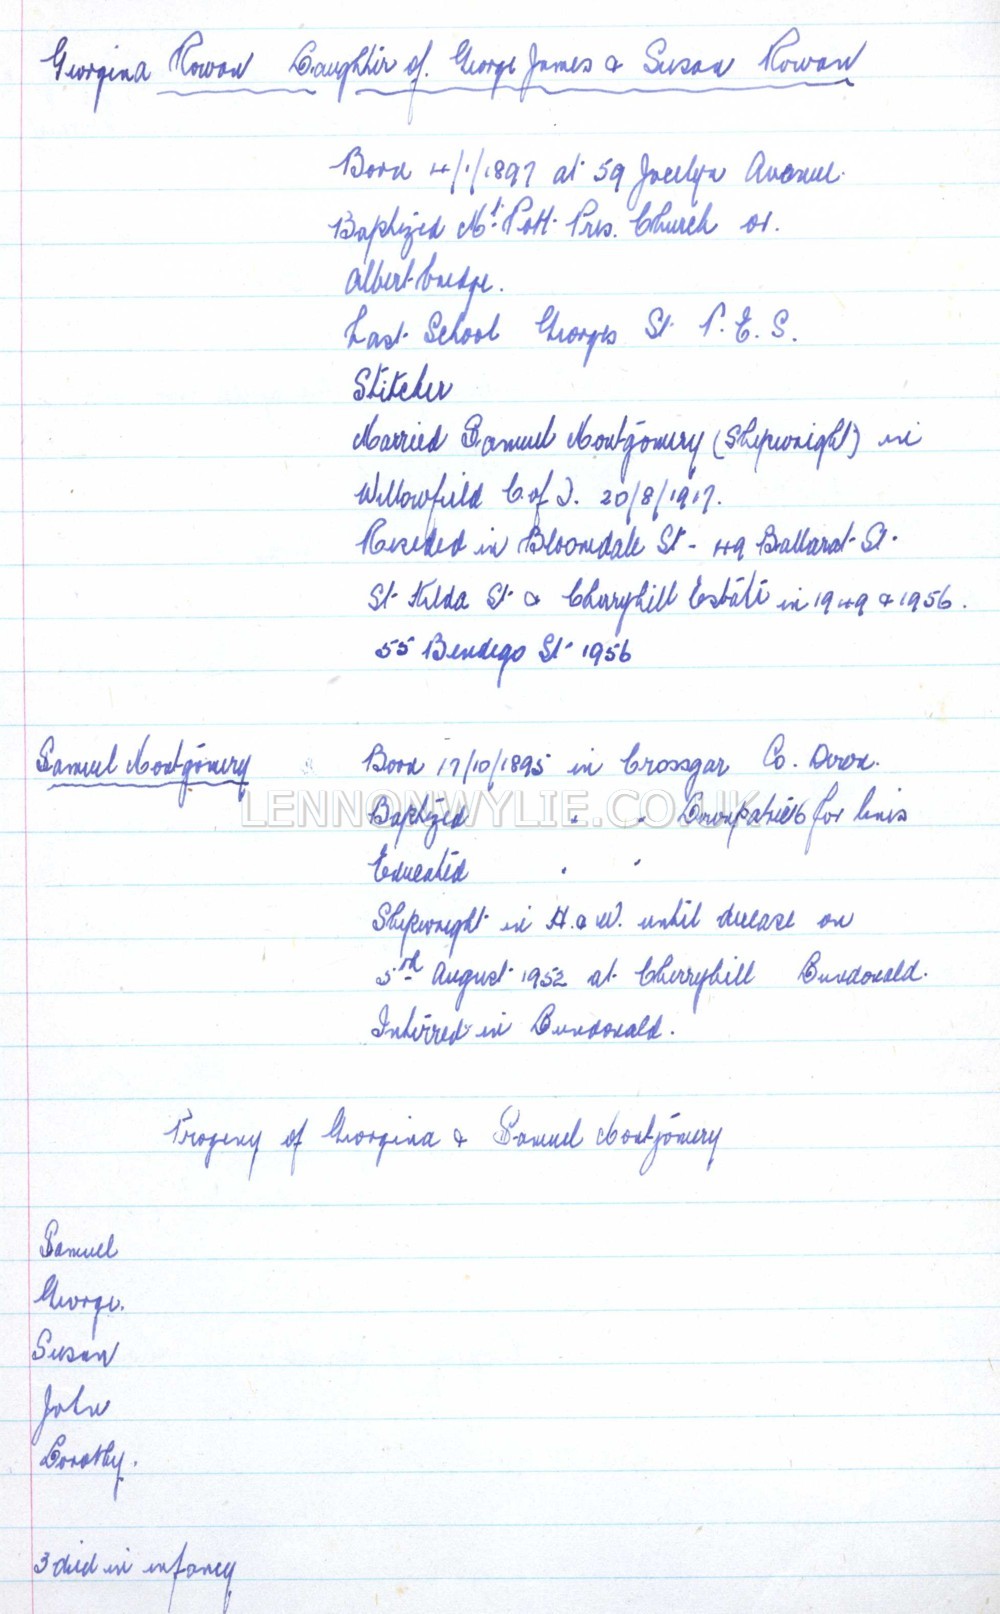 Georgina Rowan Daughter of George James & Susan Rowan
Born 4/1/1897 at 59 Jocelyn Avenue.
Baptized Mt. Pott. Pres. Church or.
Albertbridge.
Last School Georges St P.E.S.
Stitcher
Married Samuel Montgomery (Shipwright) in
Willowfield C. of I. 20/8/1917.
Resided in Bloomdale St - 49 Ballarat St.
St Kilda St & Cherryhill Estate in 1949 & 1956.
55 Bendigo St 1956
Samuel Montgomery Born 17/10/1895 in Crossgar Co. Down.
LENNONWYLIE.CO.UK
Baptized " " Downpatrick for lines
Educated " "
Shipwright in H. & W. until decease on
5th August 1952 at Cherryhill Dundonald.
Interred in Dundonald.
Progeny of Georgina & Samuel Montgomery
Samuel
George.
Susan
John
Dorothy.
3 died in infancy